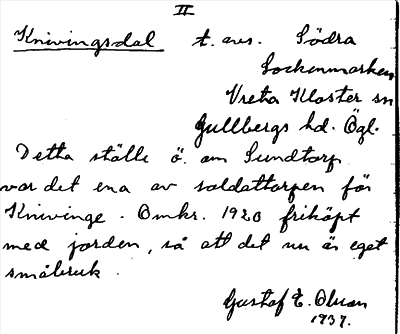 II
Knivingsdal t. avs. Södra
Sockenmarken
Vreta Kloster sn
Gullbergs hd. Ögl.
Detta ställe ö. om Sundtorp
var det ena av soldattorpen för
Knivinge. Omkr. 1920 friköpt
med jorden, så att det nu är eget
småbruk.
Gustaf E. Olsson
1937.